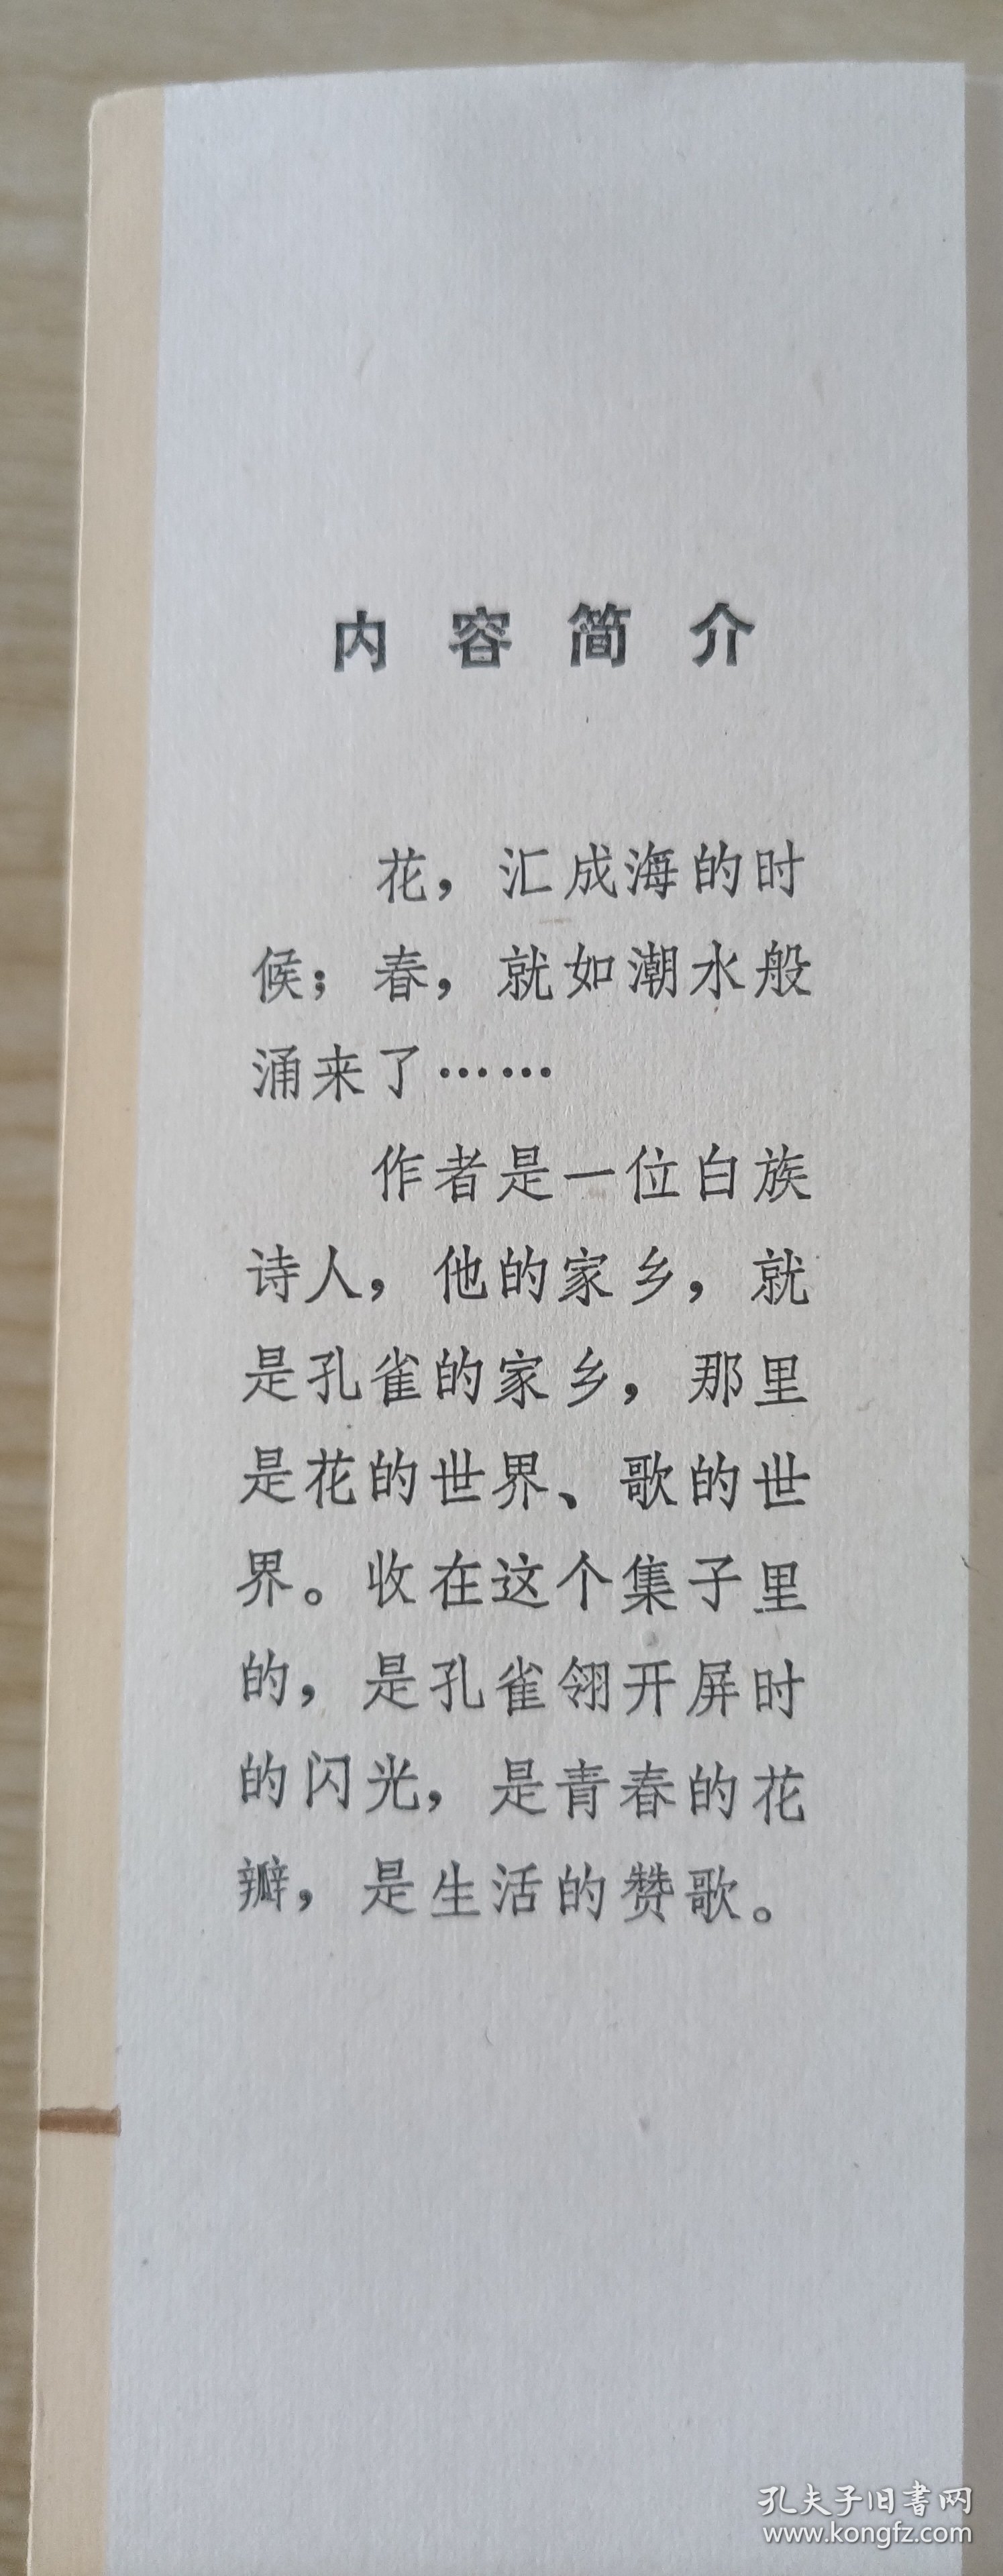 内容简介
花，汇成海的时
候；春，就如潮水般
涌来了……
作者是一位白族
诗人，他的家乡，就
是孔雀的家乡，那里
是花的世界、歌的世
界。收在这个集子里
的，是孔雀翎开屏时
的闪光，是青春的花
瓣，是生活的赞歌。
孔夫子旧书网
www.kongfz.com